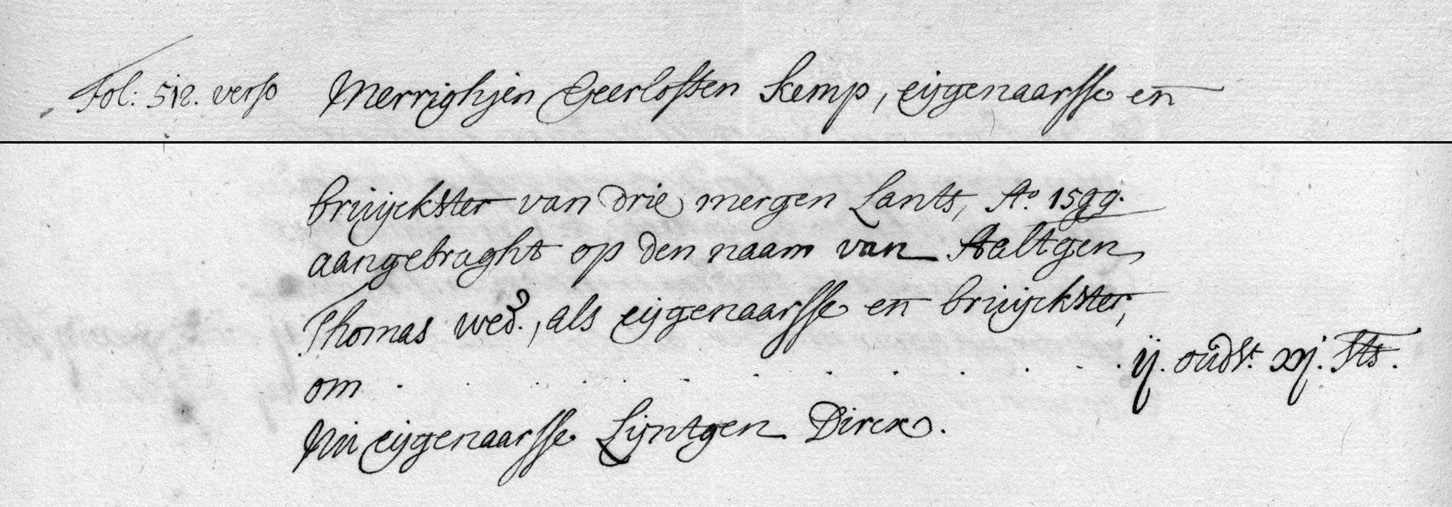 Fol: 512. verso Merrighjen Geerloffsen Kemp, eijgenaarsse en
bruijckster van drie mergen Lants, Ao. 1599.
aangebraght op den naam van Aaltgen
Thomas wed., als eijgenaarsse en bruijckster,
om . . . . . . . . . . . . ij. oudst. xvj. sts.
Nu eijgenaarsse Lijntgen Dircx.